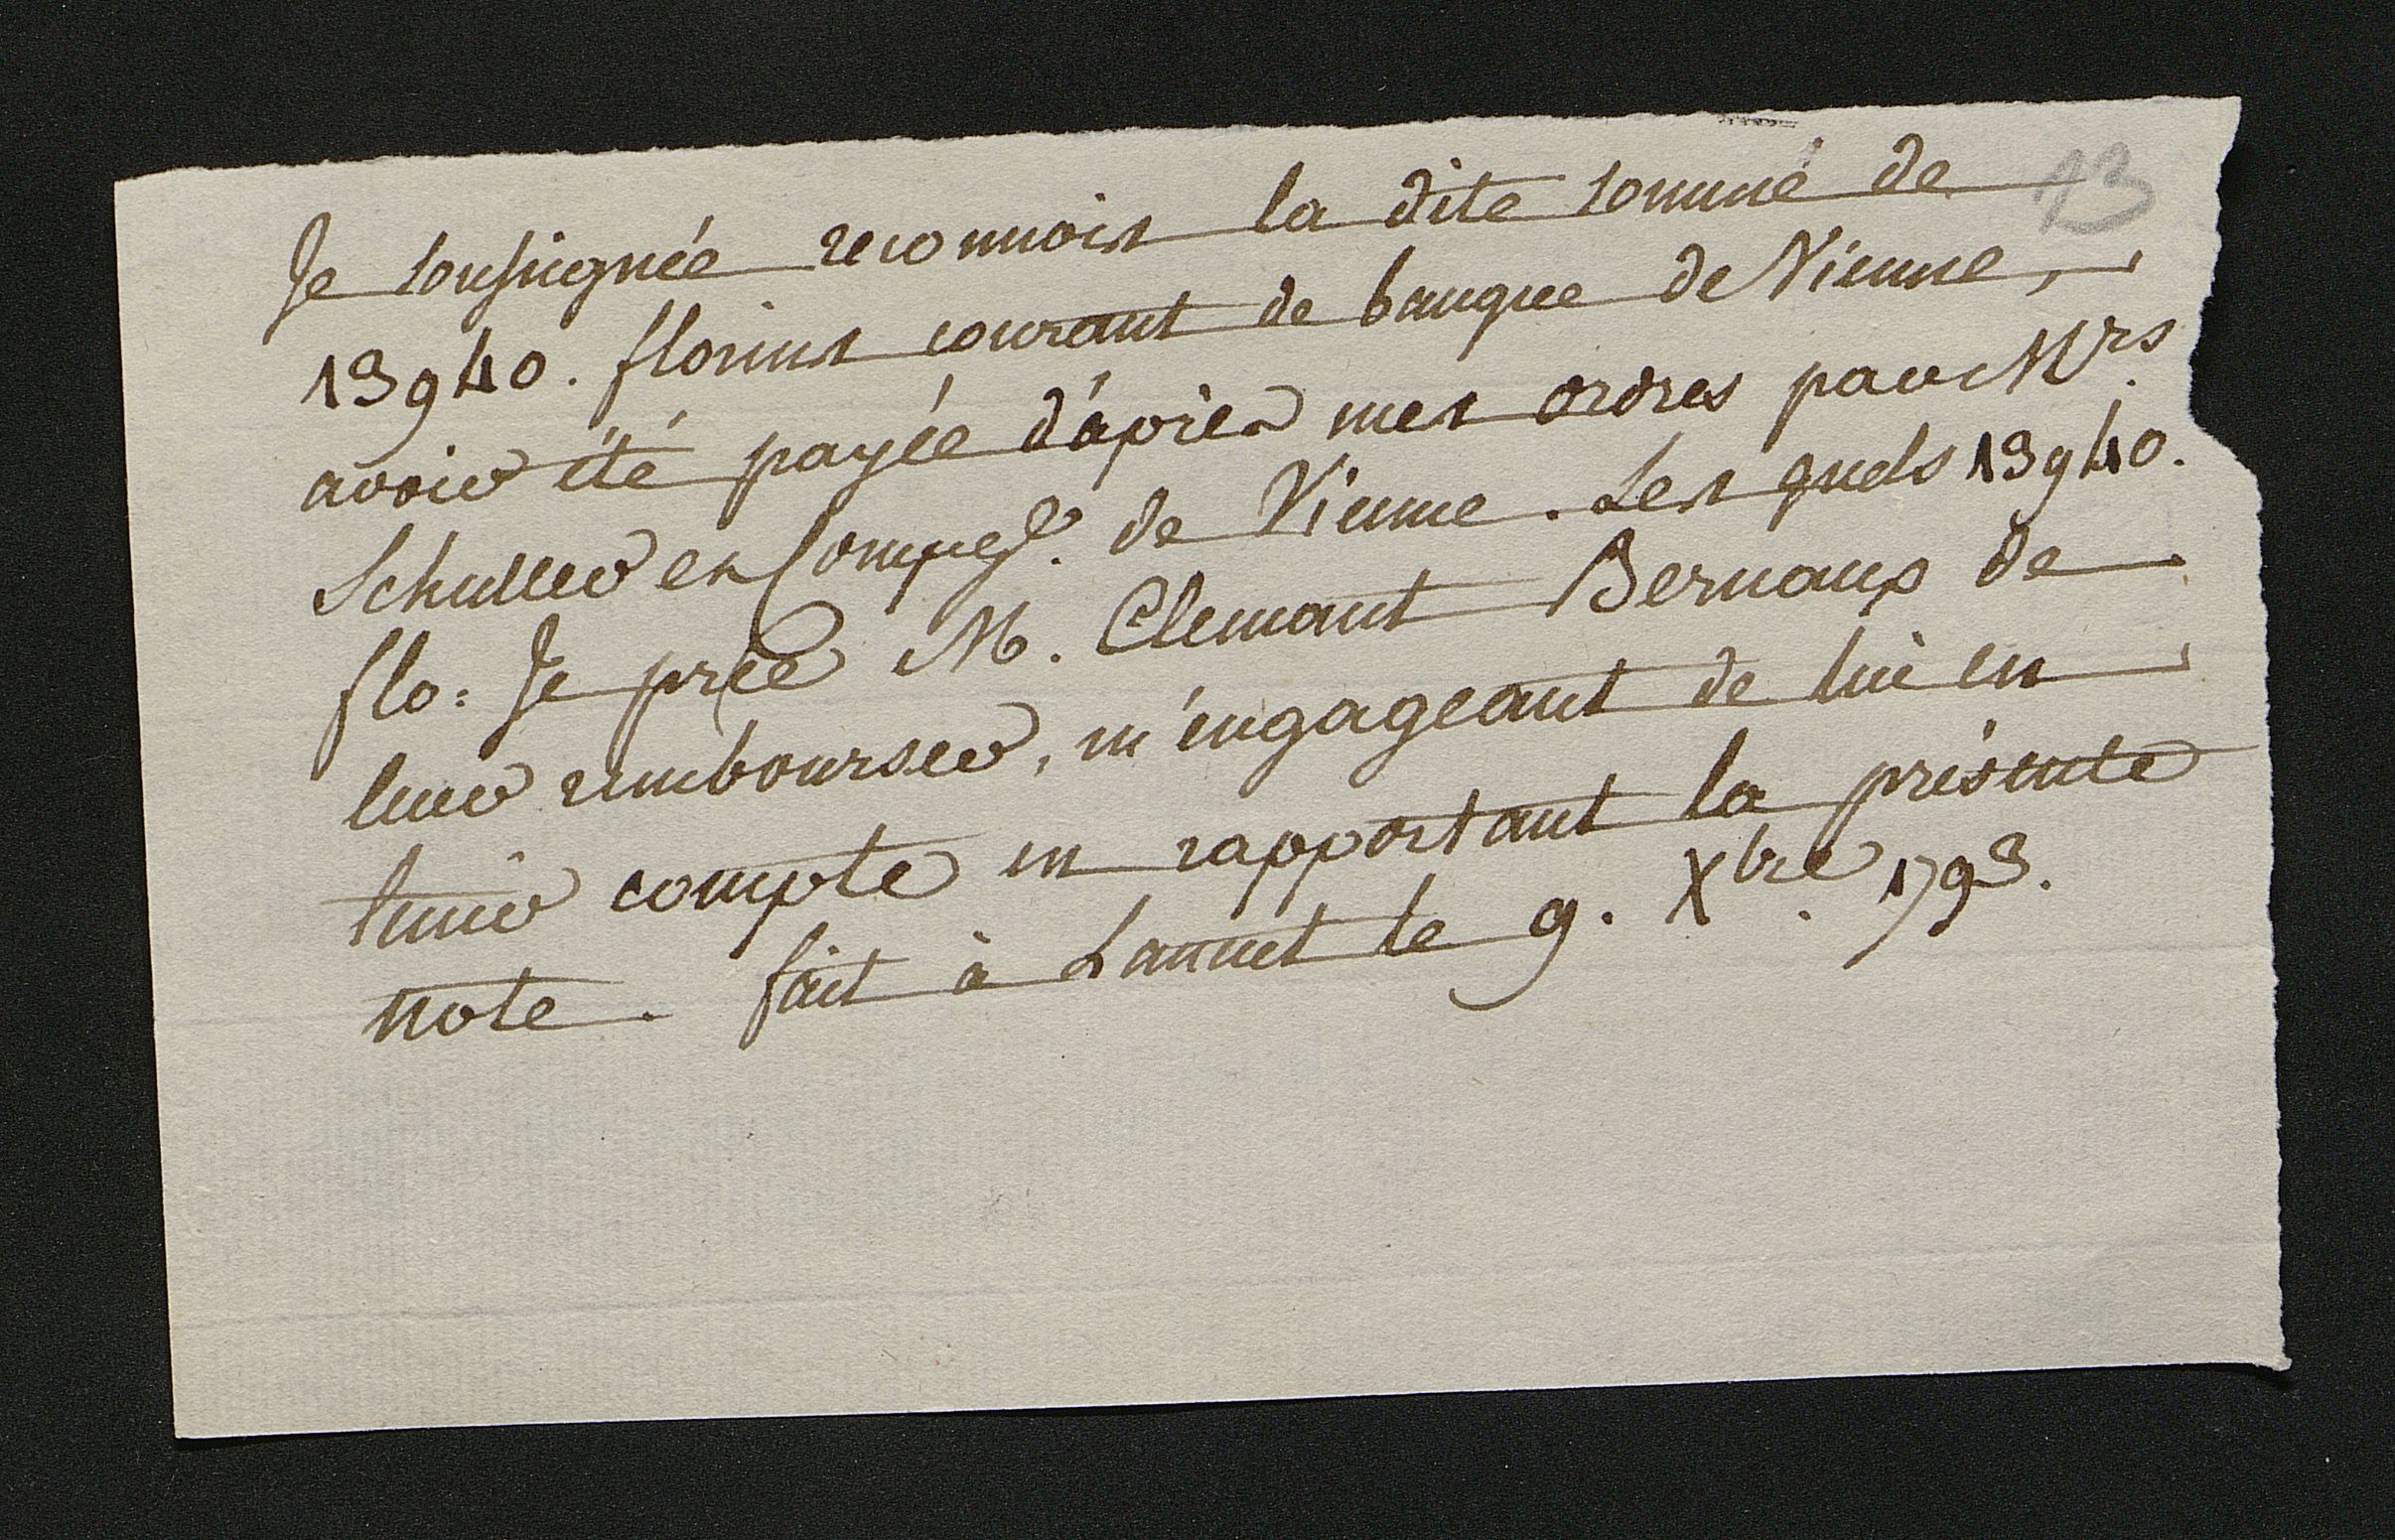 13
Je soussignée reconnois la dite somme de
13940. florins courant de banque de Vienne,
avoir été payée d'après mes ordres par Mrs.
Schuller et Compe. de Vienne. Les quels 13940.
flo: Je prie M. Clemant Bernaux de
leur rembourser, m'engageant de lui en
tenir compte en rapportant la présente
note. fait à Lannet le 9. Xbre. 1793.